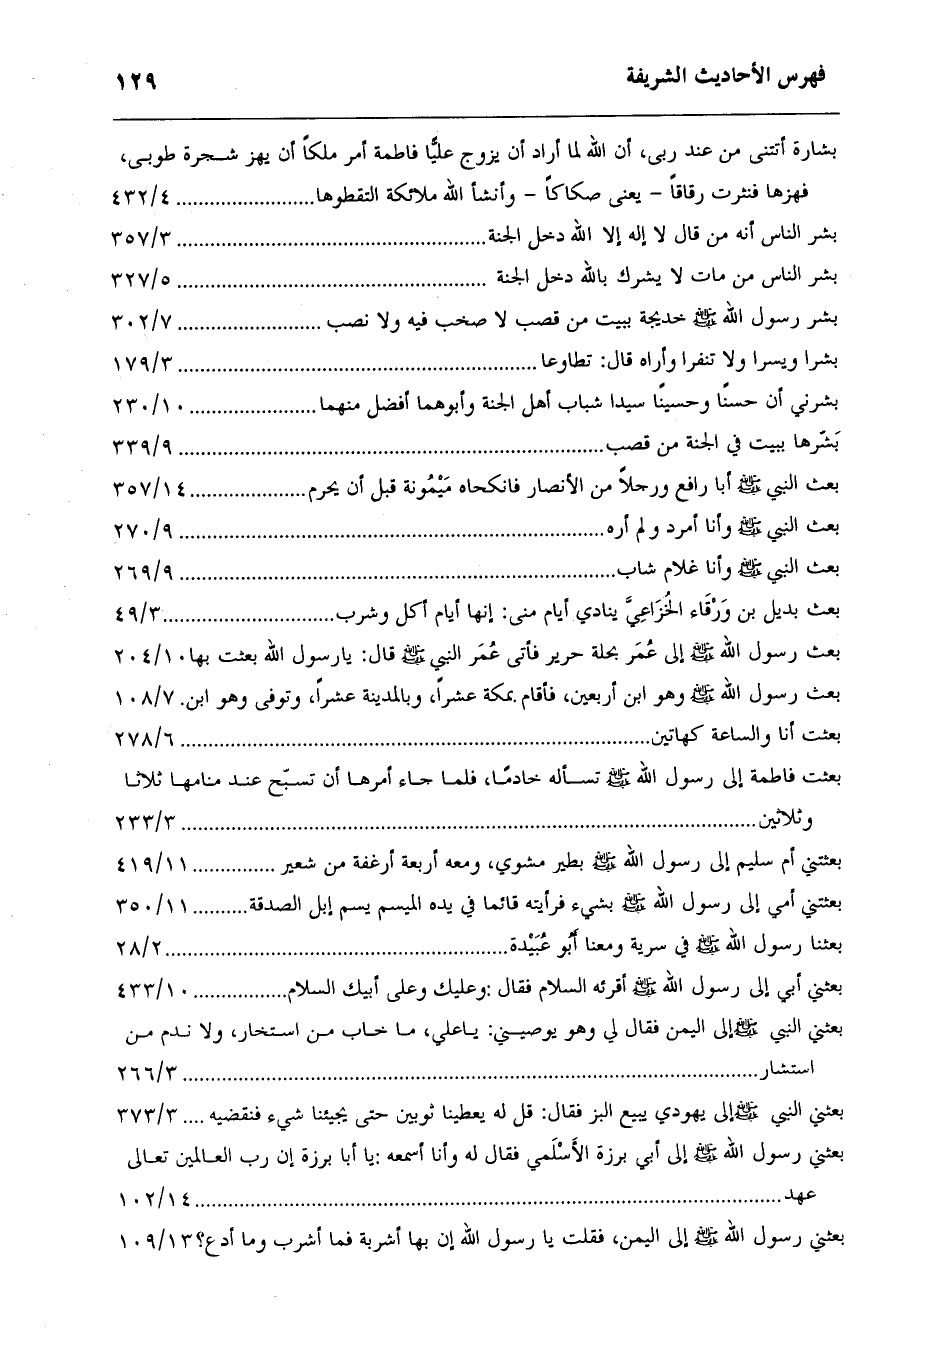 فهرس الأحاديث الشريفة ١٢٩
بشارة أتتنى من عند ربى، أن الله لما أراد أن يزوج عليًّا فاطمة أمر ملكاً أن يهز شجرة طوبى،
فهزها فنثرت رقاقاً – يعنى صكاكاً – وأنشأ الله ملائكة التقطوها........................ ٤٣٢/٤
بشر الناس أنه من قال لا إله إلا الله دخل الجنة..................................................... ٣٥٧/٣
بشر الناس من مات لا يشرك بالله دخل الجنة ..................................................... ٣٢٧/٥
بشر رسول الله ﷺ خديجة ببيت من قصب لا صخب فيه ولا نصب ......................... ٣٠٢/٧
بشرا ويسرا ولا تنفرا وأراه قال: تطاوعا............................................................. ١٧٩/٣
بشرني أن حسنًا وحسينًا سيدا شباب أهل الجنة وأبوهما أفضل منهما...................... ٢٣٠/١٠
بَشّرها ببيت في الجنة من قصب......................................................................... ٣٣٩/٩
بعث النبي ﷺ أبا رافع ورجلاً من الأنصار فانكحاه مَيْمُونة قبل أن يحرم.................... ٣٥٧/١٤
بعث النبي ﷺ وأنا أمرد و لم أره......................................................................... ٢٧٠/٩
بعث النبي ﷺ وأنا غلام شاب........................................................................... ٢٦٩/٩
بعث بديل بن وَرْقَاء الخُزَاعِيَّ ينادي أيام منى: إنها أيام أكل وشرب............................. ٤٩/٣
بعث رسول الله ﷺ إلى عُمَر بحلة حرير فأتى عُمَر النبي ﷺ قال: يارسول الله بعثت بها ٢٠٤/١٠
بعث رسول الله ﷺ وهو ابن أربعين، فأقام بمكة عشراً، وبالمدينة عشراً، وتوفى وهو ابن. ١٠٨/٧
بعثت أنا والساعة كهاتين................................................................................. ٢٧٨/٦
بعثت فاطمة إلى رسول الله ﷺ تسأله خادمًا، فلما جاء أمرها أن تسبّح عند منامها ثلاثا
وثلاثين.................................................................................................. ٢٣٣/٣
بعثتني أم سليم إلى رسول الله ﷺ بطير مشوي، ومعه أربعة أرغفة من شعير .............. ٤١٩/١١
بعثتني أمي إلى رسول الله ﷺ بشيء فرأيته قائما في يده الميسم يسم إبل الصدقة......... ٣٥٠/١١
بعثنا رسول الله ﷺ في سرية ومعنا أَبُو عُبَيْدة........................................................... ٢٨/٢
بعثني أبي إلى رسول الله ﷺ أقرئه السلام فقال :وعليك وعلى أبيك السلام................ ٤٣٣/١٠
بعثني النبي ﷺإلى اليمن فقال لي وهو يوصيني: ياعلي، ما خاب من استخار، ولا ندم من
استشار.................................................................................................. ٢٦٦/٣
بعثني النبي ﷺإلى يهودي يبيع البز فقال: قل له يعطينا ثوبين حتى يجيئنا شيء فنقضيه .... ٣٧٣/٣
بعثني رسول الله ﷺ إلى أبي برزة الأَسْلَمي فقال له وأنا أسمعه :يا أبا برزة إن رب العالمين تعالى
عهد.................................................................................................... ١٠٢/١٤
بعثني رسول الله ﷺ إلى اليمن، فقلت يا رسول الله إن بها أشربة فما أشرب وما أدع؟ ١٠٩/١٣